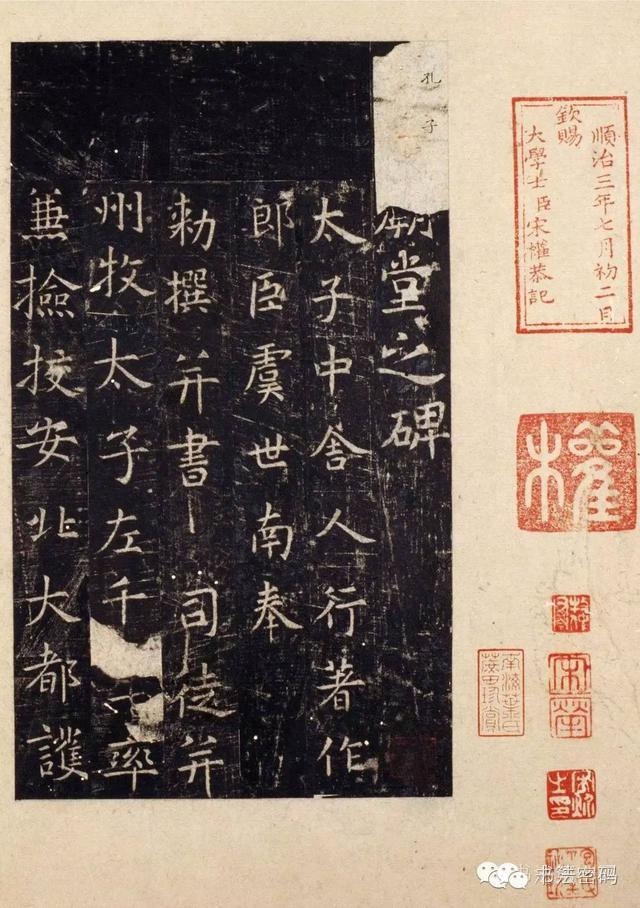 順治三年七月初二日
欽賜
大學士臣宋權恭記
權
孔子
廟堂之碑
太子中舍人行著作
郎臣虞世南奉
勅撰并書 司徒并
州牧太子左千率
兼撿挍安北大都護
书法密码